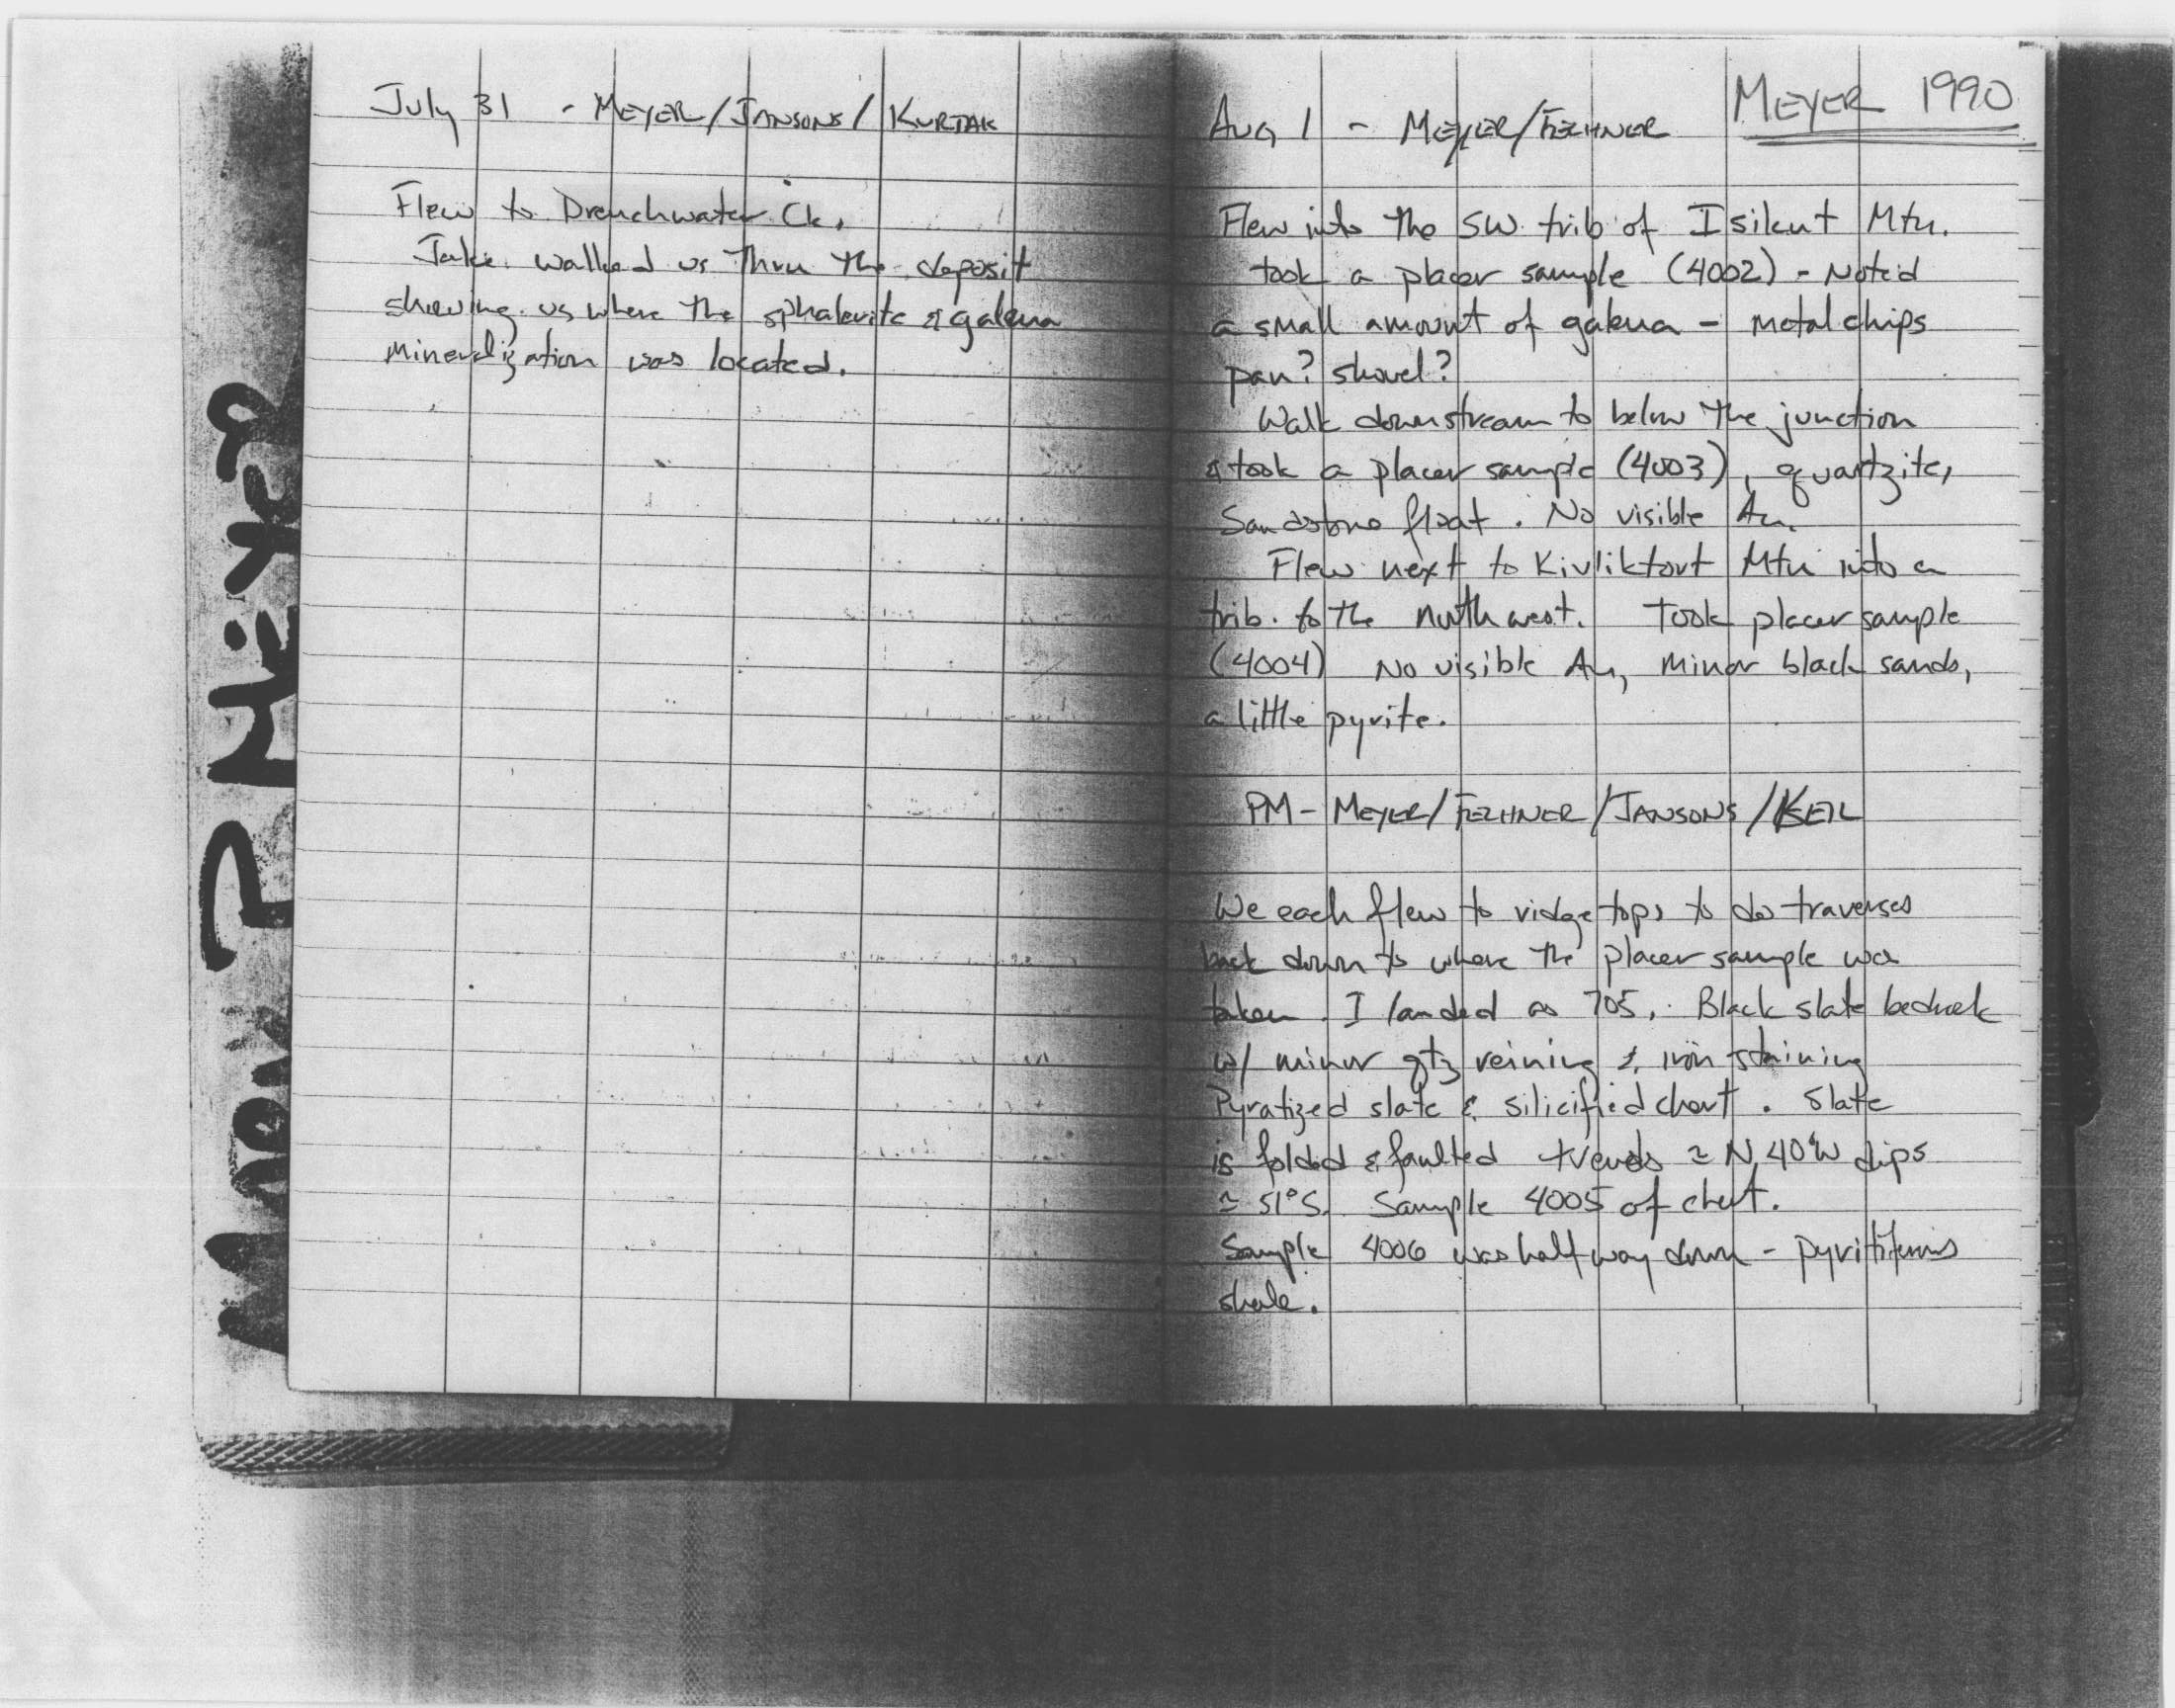 July 31 - MEYER/JANSONS/KURTAK
Flew to Drenchwater Ck.
Jake walked us thru the deposit
showing us where the sphalerite & galena
mineralization was located.
MEYER 1990
Aug 1 - MEYER/FECHNER
Flew into the SW trib of Isikut Mtn.
took a placer sample (4002) - Noted
a small amount of galena - metal chips
pan? shovel?
Walk downstream to below the junction
& took a placer sample (4003), quartzite,
Sandstone float. No visible Au.
Flew next to Kivliktort Mtn into a
trib. to the northwest. Took placer sample
(4004) No visible Au, minor black sands,
a little pyrite.
PM - MEYER/FECHNER/JANSONS/KEIL
We each flew to ridge tops to do traverses
back down to where the placer sample was
taken. I landed as 705. Black slate bedrock
w/ minor qtz veining & iron staining
Pyratized slate & silicified chert. Slate
is folded & faulted trends ≃ N 40°W dips
≃ 51°S. Sample 4005 of chert.
Sample 4006 was half way down - pyritiferous
shale.